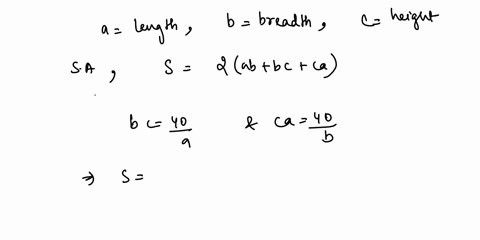 a = length , b = breadth , c = height
S.A , S = 2 (ab + bc + ca)
bc = 40/a & ca = 40/b
→ S =